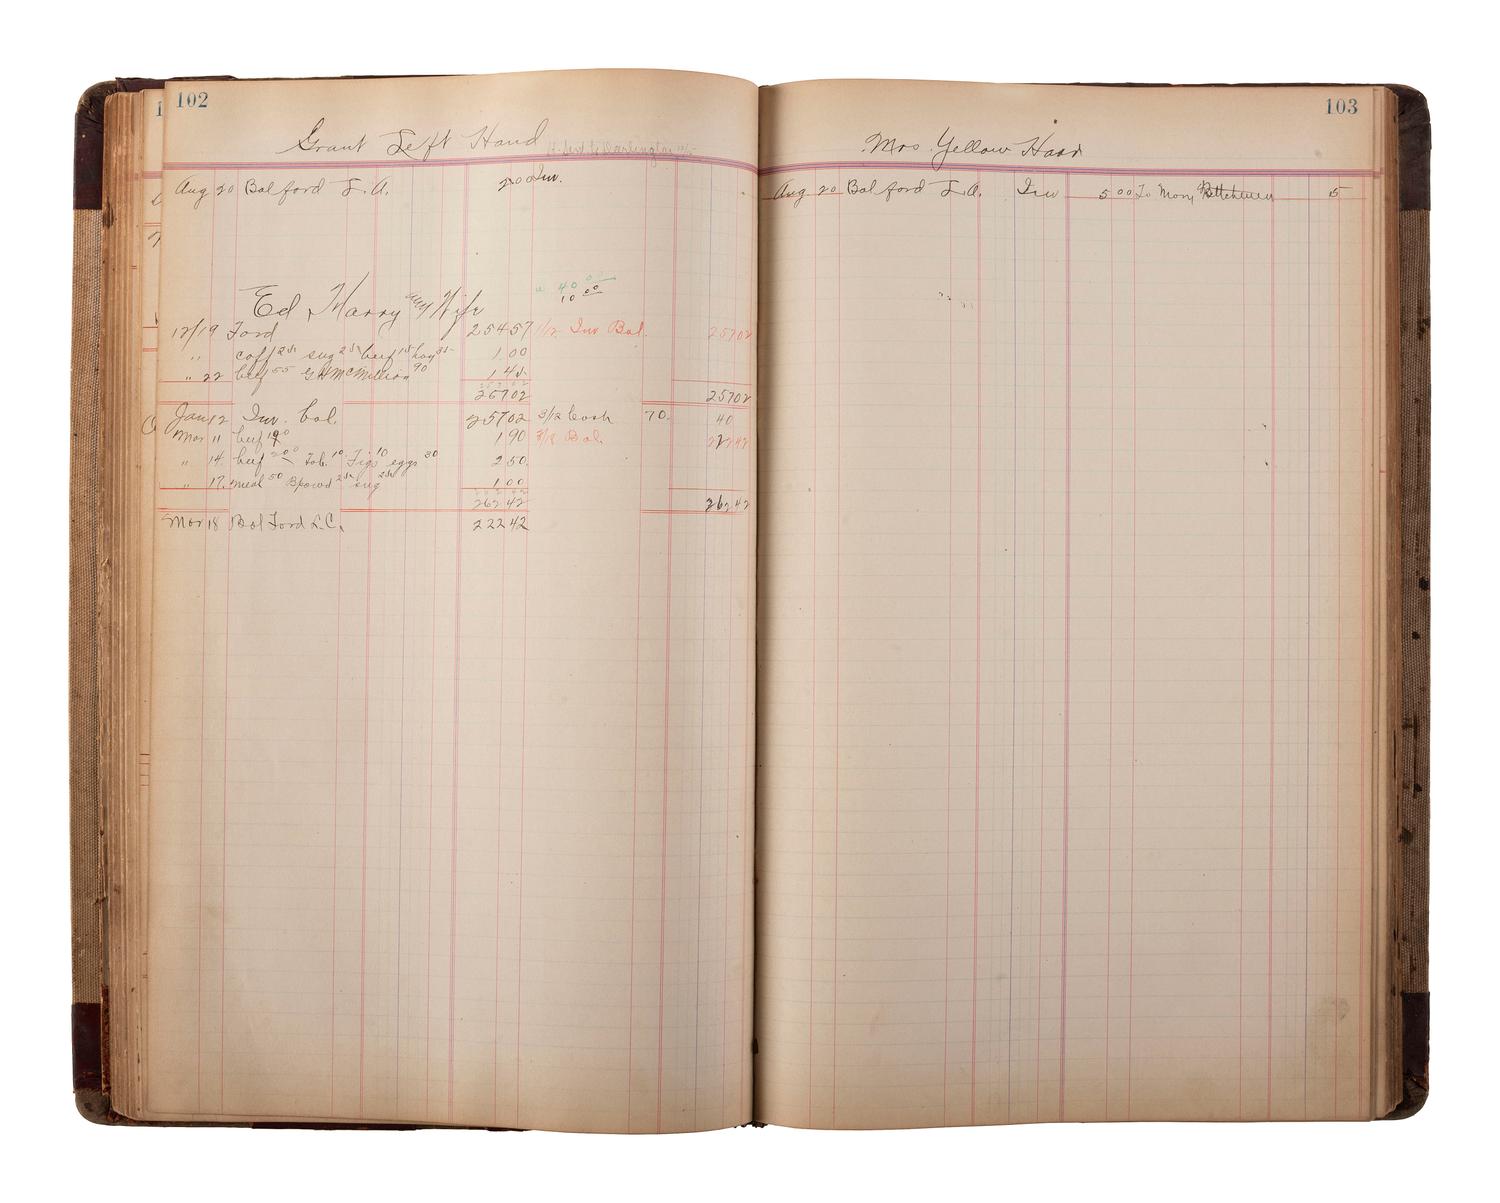 102
Grant Left Hand
Aug 20 Bal ford L.A. 2.00 Inv.
40 00
10 00
Ed Harry and Wife
12/19 Ford 254 57 1/12 Inv Bal. 257 02
" coff 25 sug 25 beef 15 hay 35 1.00
" 22 beef 55 GH McMillion 90 1 45
257 02 257 02
Jan 12 Inv. bal. 257 02 3/12 Cash 70. 40
Mar 11 beef 190 1 90 3/18 Bal. 222 42
" 14. beef 200 Tob. 10 Figs 10 eggs 30 2 50.
" 17. meal 50 Bpowd 25 sug 25 1 00
262 42 262 42
Mar 18 Bal Ford L.C. 222 42
103
Mrs Yellow Hair
Aug. 20 Bal ford L.A. Inv 5 00 To Mon, 5